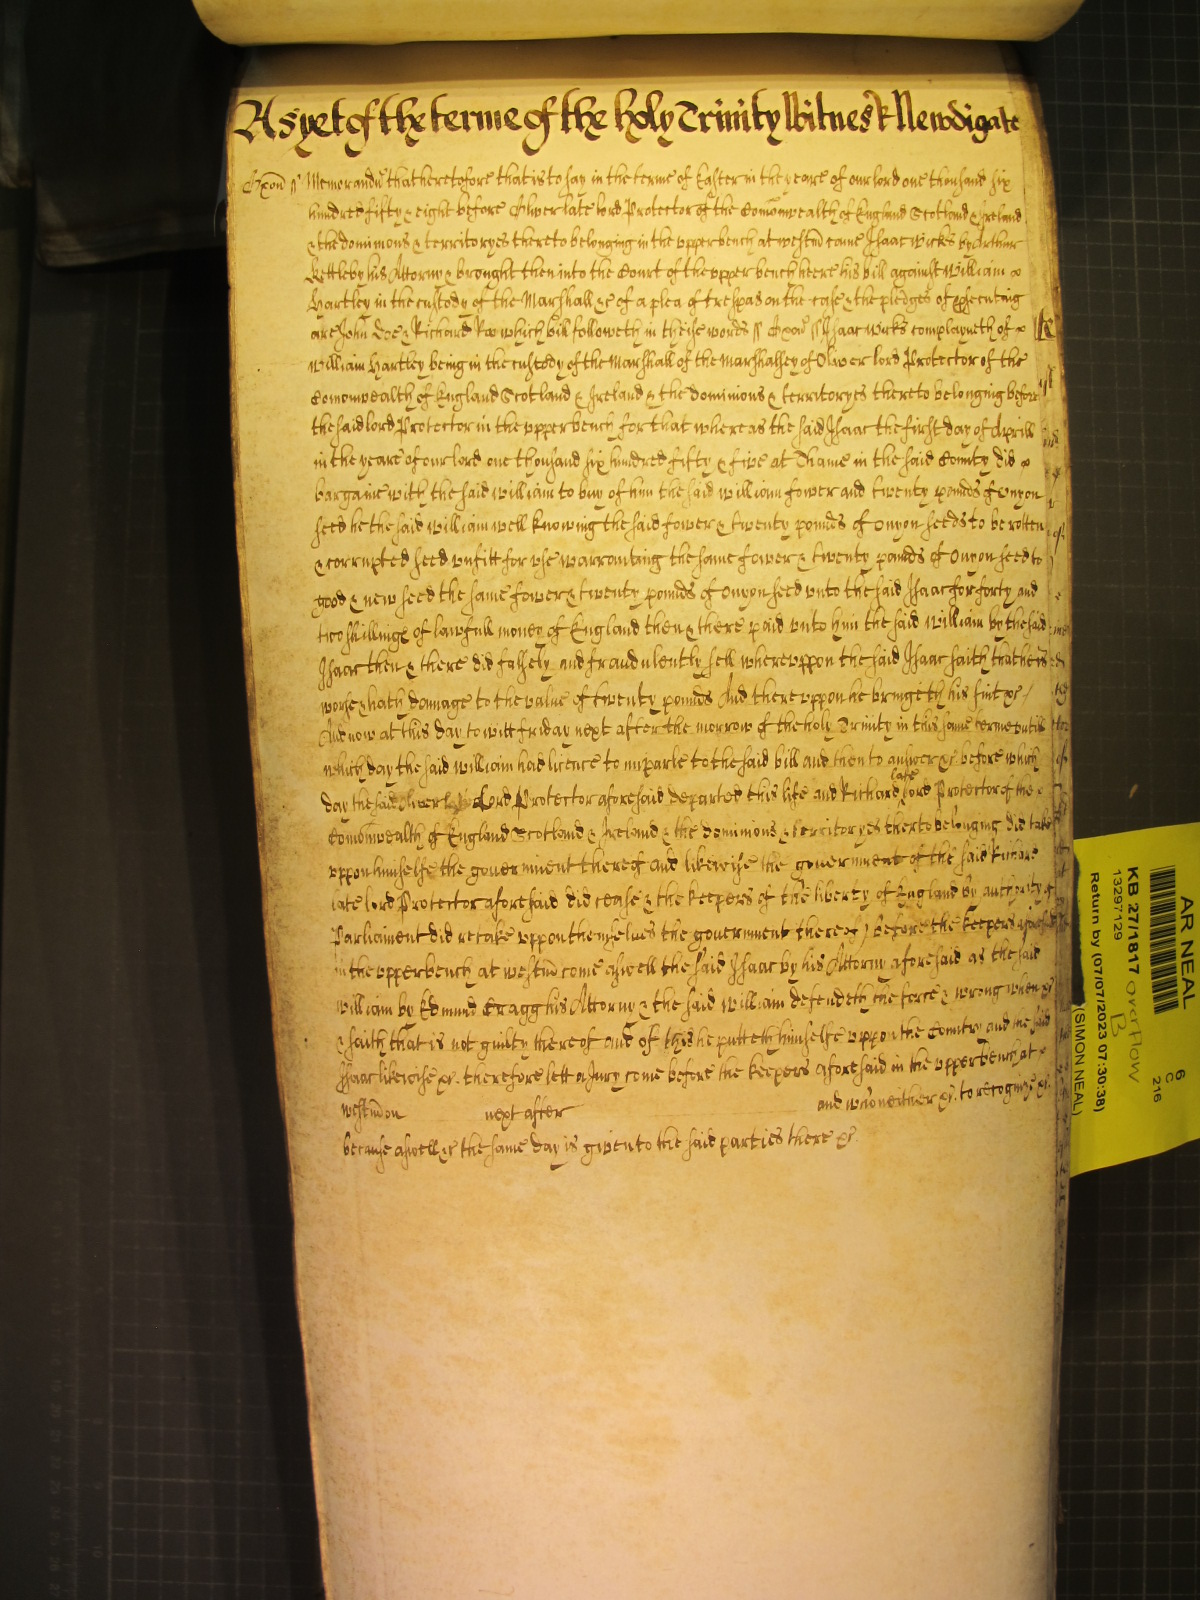 As yet of the terme of the holy Trinity Witnes R Newdigate
Oxon ss Memorandu that heretofore that is to say in the terme of Easter in the yeare of our lord one thousand six
hundred fifty & eight before Oliver late lord Protector of the Comonwealth of England Scotland & Ireland
& the dominions & territoryes thereto belonging in the upper bench at westm came Isaac Wicks by Arthur
Kettleby his Attorny & brought then into the Court of the upper bench heere his bill against William
Hartley in the custody of the Marshall &c of a plea of trespas on the case & the pledges of psecuting
are John Doe & Richard Roe which bill followeth in theise words ss Oxon ss Isaac Wicks complayneth of
William Hartley being in the custody of the Marshall of the Marshalsey of Oliver lord Protector of the
Comonwealth of England Scotland & Ireland & the dominions & territoryes thereto belonging before
the said lord Protector in the upper bench for that whereas the said Isaac the first day of Aprill
in the yeare of our lord one thousand six hundred fifty & five at Thame in the said County did
bargaine with the said William to buy of him the said William fower and twenty pounds of Onyon
seed he the said William well knowing the said fower & twenty pounds of Onyon seeds to be rotten
& corrupted seed unfitt for use warranting the same fower & twenty pounds of Onyon seed to
good & new seed the same fower & twenty pounds of Onyon seed unto the said Isaac for forty and
two shillings of lawfull money of England then & there paid unto him the said William by the said
Isaac then & there did falsely and fraudulently sell whereuppon the said Isaac saith that he is
worse & hath damage to the value of twenty pounds And thereuppon he bringeth his suit &c /
And now at this day to witt friday next after the morrow of the holy Trinity in this same terme untill
which day the said William had licence to imparle to the said bill and then to answer &c. before which
day the said Oliver Lord Protector aforesaid departed this life and Richard late lord Protector of the
Comonwealth of England Scotland & Ireland & the dominions & territoryes thereto belonging did take
uppon himselfe the government thereof and likewise the government of the said Richard
late lord Protector aforesaid did cease & the keepers of the liberty of England by authority of
Parliament did retake uppon themselves the government thereof) before the keepers aforesaid
in the upper bench at westm come aswell the said Isaac by his Attorny aforesaid as the said
William by Edmund Cragg his Attorny & the said William defendeth the force & wrong when &c
& saith that is not guilty thereof and of this he putteth himselfe uppon the Country and the said
Isaac likewise &c. therefore lett a Jury come before the keepers aforesaid in the upper bench at
westm on next after and who neither &c. to recognize &c.
because aswell &c the same day is given to the said parties there &c.
AR NEAL
6
C
216
KB 27/1817 overflow
B
13297129
Return by (07/07/2023 07:30:38)
(SIMON NEAL)